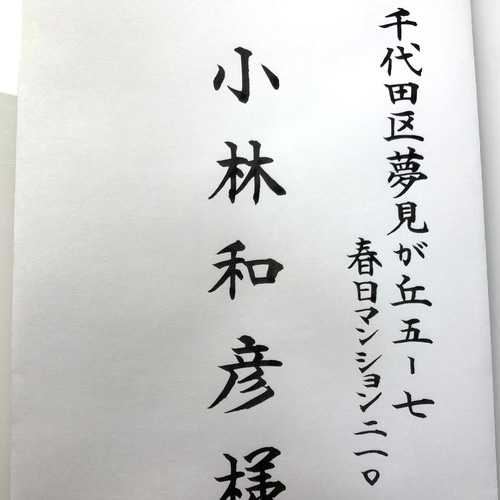 千代田区夢見が丘五ー七
春日マンション二一〇
小林和彦様